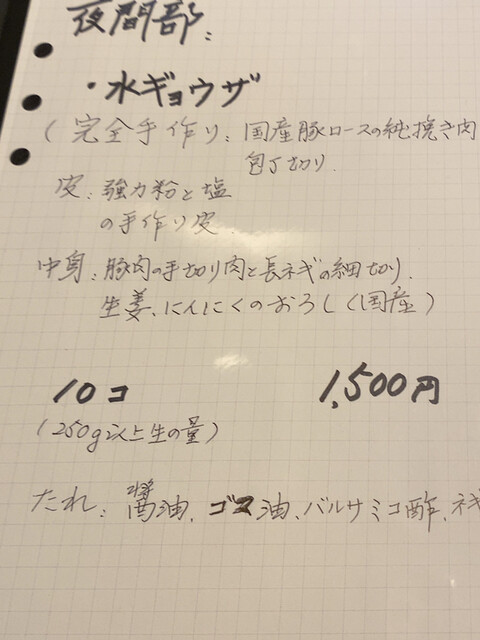 夜間部:
・水ギョウザ
(完全手作り:国産豚ロースの純挽き肉
包丁切り.
皮:強力粉と塩
の手作り皮.
中身:豚肉の手切り肉と長ネギの細切り.
生姜、にんにくのおろし(国産)
10コ 1,500円
(250g以上生の量)
たれ:醤油、ゴマ油、バルサミコ酢、ネギ